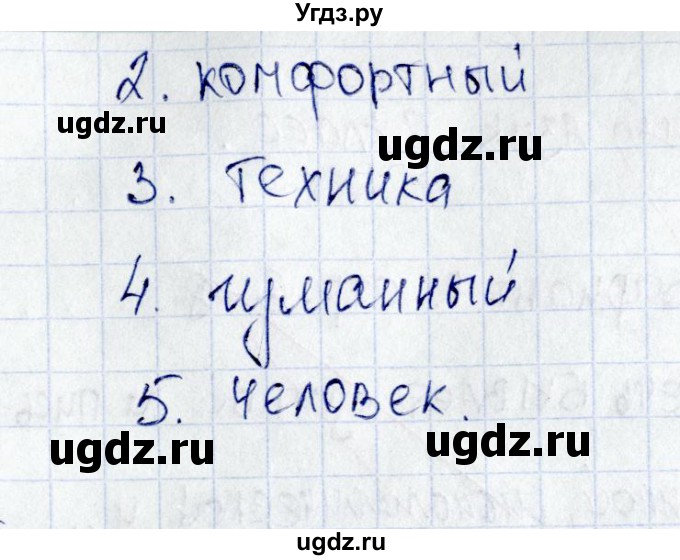 Угдз.ру
2. комфортный
ugdz.ru
ugdz.ru
3. техника
4. гуманный
5. человек.
ugdz.ru
ugdz.ru
ugdz.ru